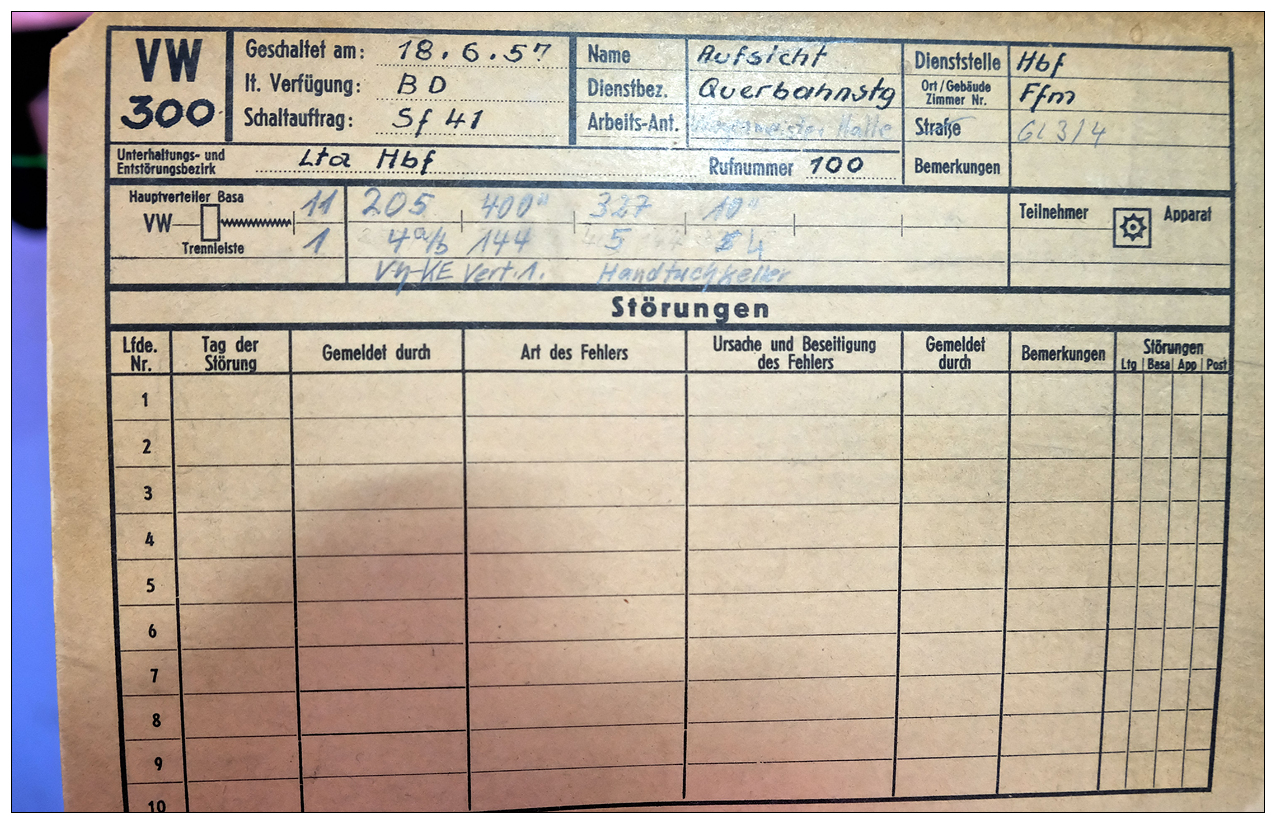 VW
300
Geschaltet am: 18.6.57
lt. Verfügung: BD
Schaltauftrag: Sf 41
Name Aufsicht
Dienstbez. Querbahnstg
Arbeits-Ant. Halle
Dienststelle Hbf
Ort/Gebäude Zimmer Nr. Ffm
Straße GL 3/4
Bemerkungen
Unterhaltungs- und Entstörungsbezirk Lta Hbf
Rufnummer 100
Hauptverteiler Basa
VW
Trennleiste
11 205 400 327 10"
1 4a/b 144 5 4
Vert. 1. Handtuchkeller
Teilnehmer Apparat
Störungen
Lfde. Nr. Tag der Störung Gemeldet durch Art des Fehlers Ursache und Beseitigung des Fehlers Gemeldet durch Bemerkungen Störungen
Ltg Basa App Post
1
2
3
4
5
6
7
8
9
10